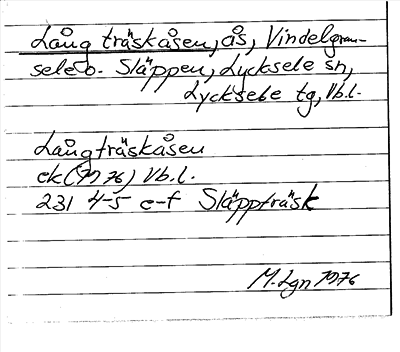 Lång träskåsen, ås, Vindelgran-
sele o. Släppen, Lycksele sn,
Lycksele tg, Vb.l.
Långträskåsen
ek (1976) Vb.l.
231 4-5 e-f Släppträsk
M. Lgn 1976